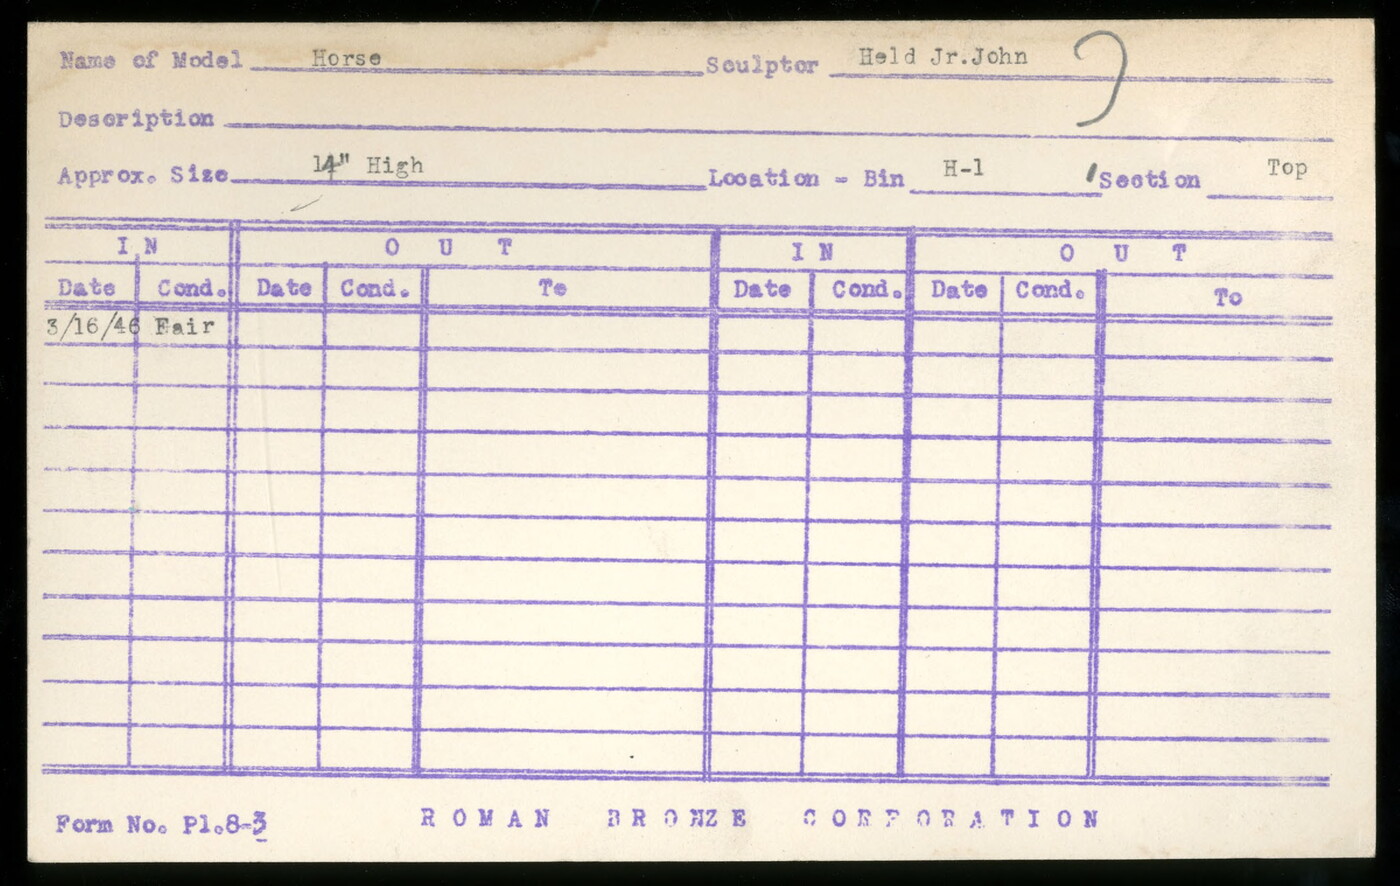 Name of Model Horse Sculptor Held Jr.John
Description
Approx. Size 14" High Location - Bin H-1 Section Top
IN OUT IN OUT
Date Cond. Date Cond. To Date Cond. Date Cond. To
3/16/46 Fair
Form No. Pl.8-3 ROMAN BRONZE CORPORATION